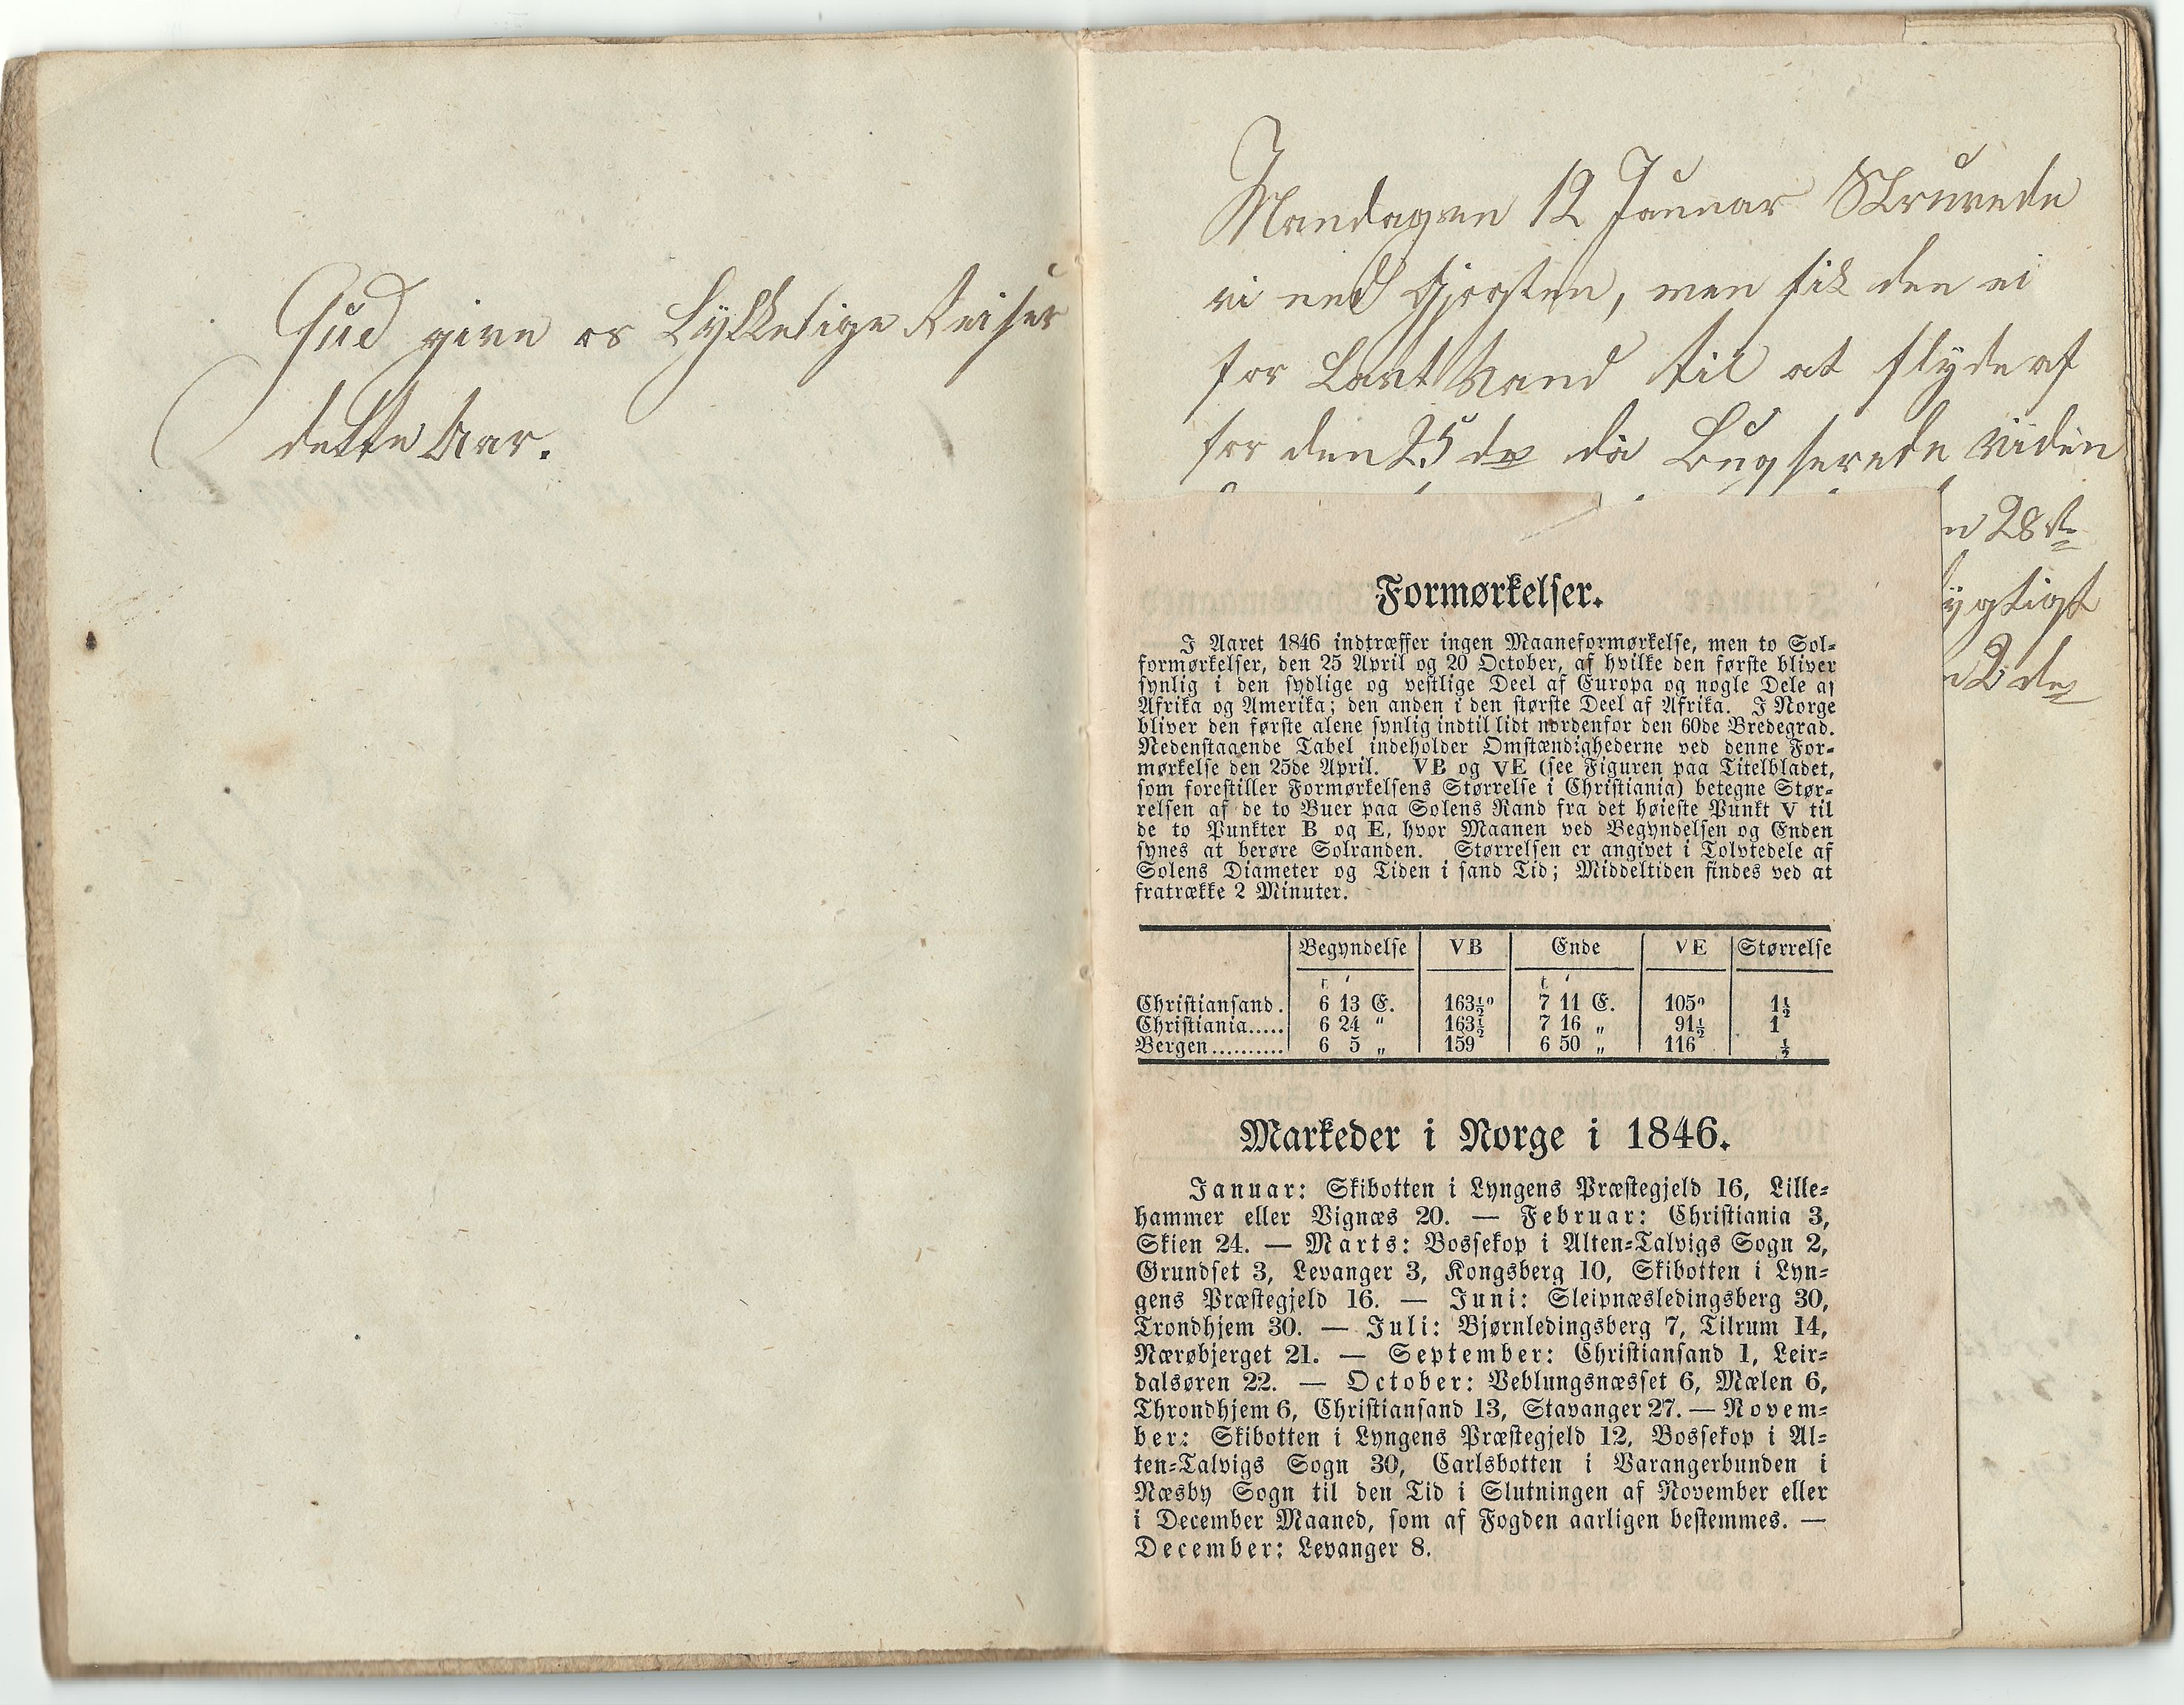 Gud give os Lykkelige Reiser
dette Aar.
Mandagen 12 Januar Skruvede
vi ned Gjogten, men fik den ei
for Lavt Vand til at flyde af
for den 25 de da Bugserede vi den
28 de
ygtigt
2 de
Formørkelser.
I Aaret 1846 indtræffer ingen Maaneformørkelse, men to Sol-
formørkelser, den 25 April og 20 October, af hvilke den første bliver
synlig i den sydlige og vestlige Deel af Europa og nogle Dele af
Afrika og Amerika; den anden i den største Deel af Afrika. I Norge
bliver den første alene synlig indtil lidt nordenfor den 60de Bredegrad.
Nedenstaaende Tabel indeholder Omstændighederne ved denne For-
mørkelse den 25de April. VB og VE (see Figuren paa Titelbladet,
som forestiller Formørkelsens Størrelse i Christiania) betegne Stør-
relsen af de to Buer paa Solens Rand fra det høieste Punkt V til
de to Punkter B og E, hvor Maanen ved Begyndelsen og Enden
synes at berøre Solranden. Størrelsen er angivet i Tolvtedele af
Solens Diameter og Tiden i sand Tid; Middeltiden findes ved at
fratrække 2 Minuter.
Begyndelse VB Ende VE Størrelse
t ' t '
Christiansand. 6 13 E. 163½° 7 11 E. 105° 1½
Christiania..... 6 24 " 163½ 7 16 „ 91½ 1
Bergen.......... 6 5 „ 159 6 50 „ 116 ½
Markeder i Norge i 1846.
Januar: Skibotten i Lyngens Præstegjeld 16, Lille-
hammer eller Vignæs 20. — Februar: Christiania 3,
Skien 24. — Marts: Bossekop i Alten-Talvigs Sogn 2,
Grundset 3, Levanger 3, Kongsberg 10, Skibotten i Lyn-
gens Præstegjeld 16. — Juni: Sleipnæsledingsberg 30,
Trondhjem 30. — Juli: Bjørnledingsberg 7, Tilrum 14,
Nærøbjerget 21. — September: Christiansand 1, Leir-
dalsøren 22. — October: Veblungsnæsset 6, Mælen 6,
Throndhjem 6, Christiansand 13, Stavanger 27. — Novem-
ber: Skibotten i Lyngens Præstegjeld 12, Bossekop i Al-
ten-Talvigs Sogn 30, Carlsbotten i Varangerbunden i
Næsby Sogn til den Tid i Slutningen af November eller
i December Maaned, som af Fogden aarligen bestemmes. —
December: Levanger 8.